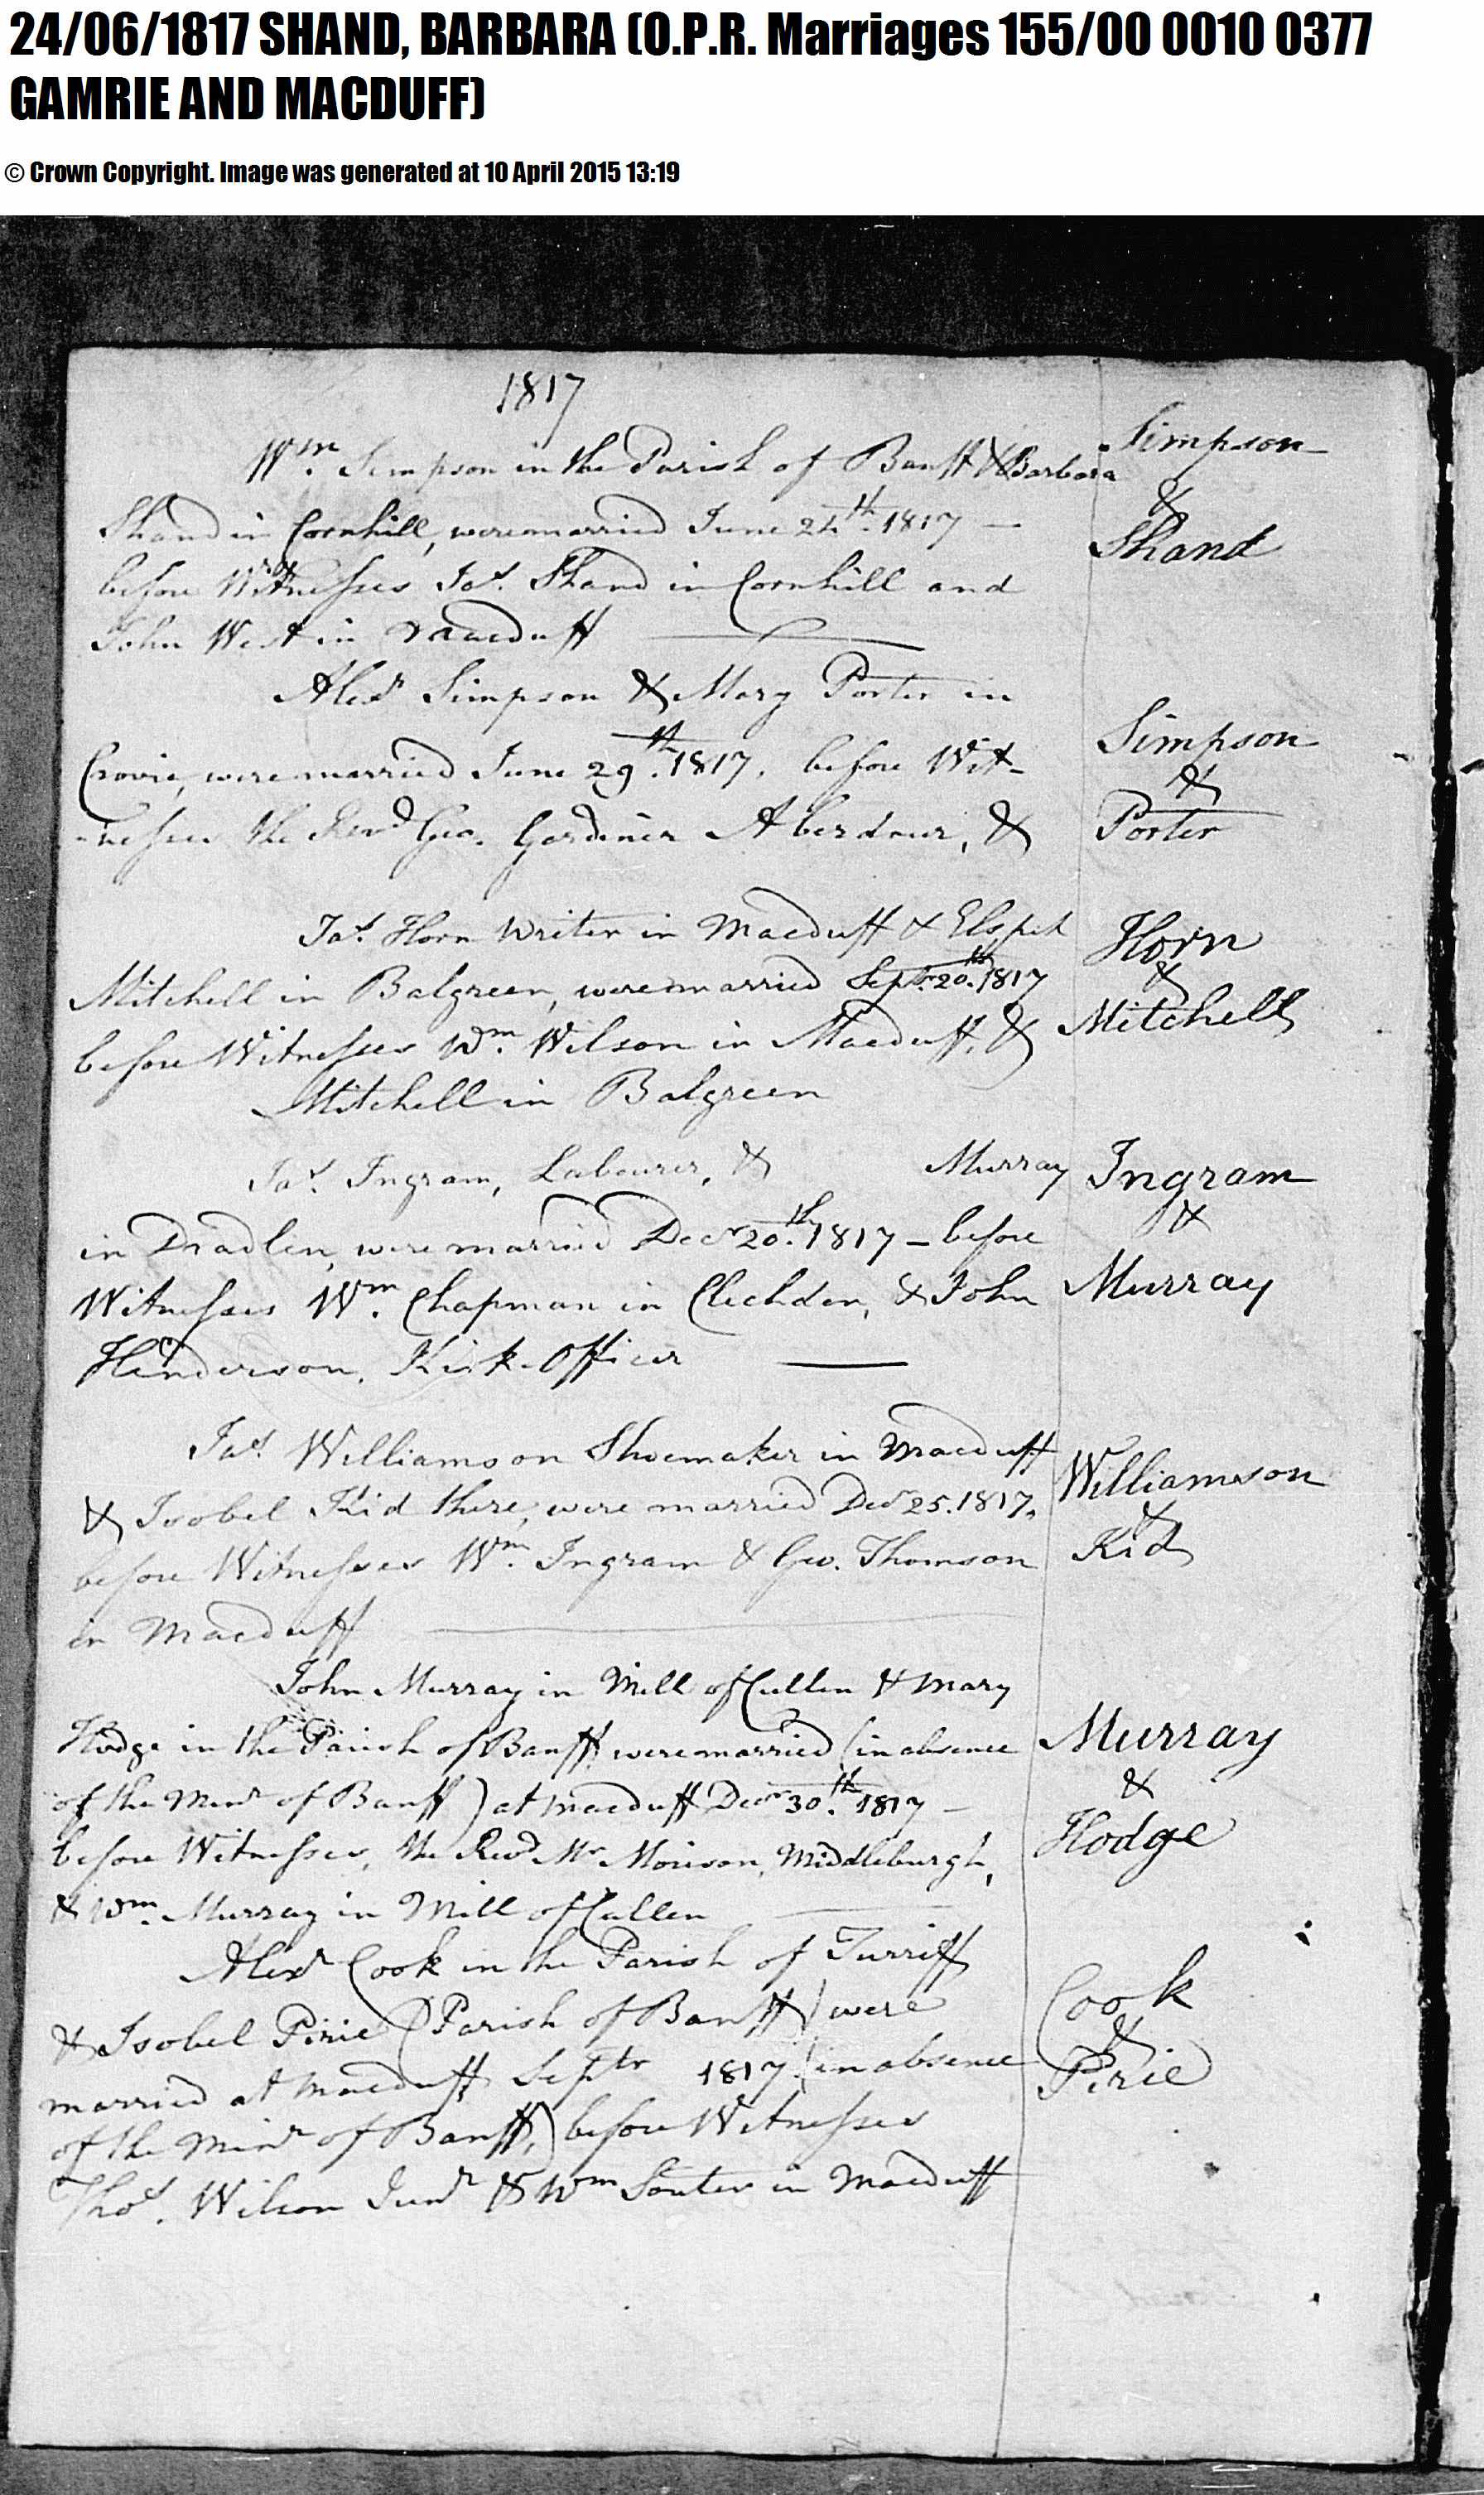 24/06/1817 SHAND, BARBARA (O.P.R. Marriages 155/00 0010 0377
GAMRIE AND MACDUFF)
© Crown Copyright. Image was generated at 10 April 2015 13:19
1817
Wm. Simpson in the Parish of Banff & Barbara
Shand in Cornhill, were married June 24th. 1817 —
before Witnesses Jas. Shand in Cornhill and
John West in Macduff
Simpson
&
Shand
Alexr Simpson & Mary Porter in
Crovie, were married June 29th. 1817, before Wit-
-nesses the Revd Geo. Gardiner Aberdour, &
Simpson
&
Porter
Jas. Horn Writer in Macduff & Elspet
Mitchell in Balgreen, were married Septr. 20th. 1817
before Witnesses Wm. Wilson in Macduff, &
Mitchell in Balgreen
Horn
&
Mitchell
Jas. Ingram, Labourer, & Murray
in Dradlen, were married Decr 20th. 1817 — before
Witnesses Wm. Chapman in Clechden, & John
Henderson, Kirk-Officer
Ingram
&
Murray
Jas. Williamson Shoemaker in Macduff
& Isobel Kid there, were married Decr 25. 1817,
before Witnesses Wm. Ingram & Geo. Thomson
in Macduff
Williamson
&
Kid
John Murray in Mill of Cullen & Mary
Hodge in the Parish of Banff were married (in absence
of the Minr of Banff) at Macduff Decr 30th. 1817 —
before Witnesses, the Revd Mr Morison, Middleburgh,
& Wm. Murray in Mill of Cullen
Murray
&
Hodge
Alexr Cook in the Parish of Turriff
& Isobel Pirie (Parish of Banff) were
married at Macduff Septr 1817 (in absence
of the Minr of Banff,) before Witnesses
Thos. Wilson Junr & Wm Souter in Macduff
Cook
&
Pirie